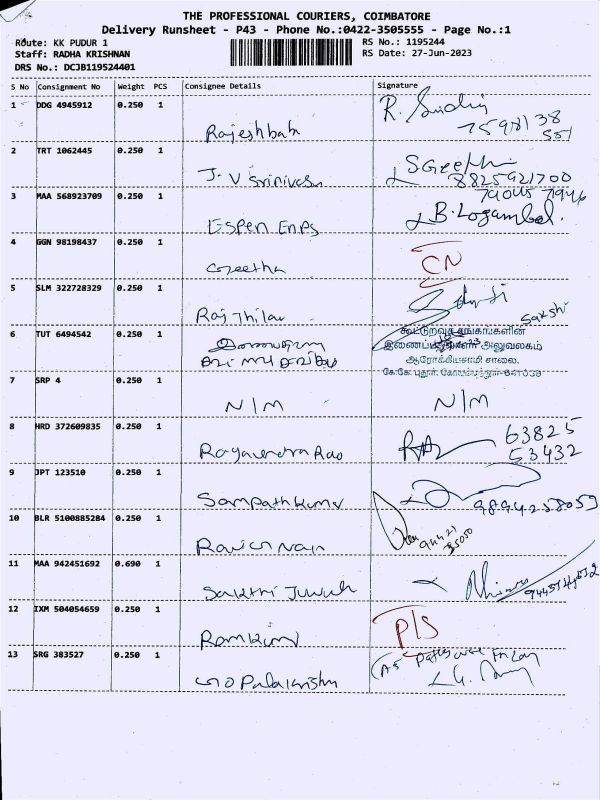 THE PROFESSIONAL COURIERS, COIMBATORE
Delivery Runsheet - P43 - Phone No.:0422-3505555 - Page No.:1
Route: KK PUDUR 1 RS No.: 1195244
Staff: RADHA KRISHNAN RS Date: 27-Jun-2023
DRS No.: DCJB119524401
S No Consignment No Weight PCS Consignee Details Signature
1 DDG 4945912 0.250 1
Rajeshbab
2 TRT 1062445 0.250 1
J. V Srinivasan 8825921700
3 MAA 568923709 0.250 1
ESPEN ENPS B. Logambal.
4 GGN 98198437 0.250 1
Geetha CN
5 SLM 322728329 0.250 1
Raj Thilak Sakshi
6 TUT 6494542 0.250 1 கூட்டுறவு சங்கங்களின்
அலுவலகம்
ஆரோக்கியசாமி சாலை.
கே.கே.புதூர்,
7 SRP 4 0.250 1
N/M N/M
8 HRD 372609835 0.250 1 63825
Ragavendra Rao 53432
9 JPT 123510 0.250 1
Sampath Kumar 9894258059
10 BLR 5100885284 0.250 1 94421
35050
11 MAA 942451692 0.690 1
Sakthi
12 IXM 504054659 0.250 1
Ramkumar P/S
13 SRG 383527 0.250 1
Gopalakrishnan